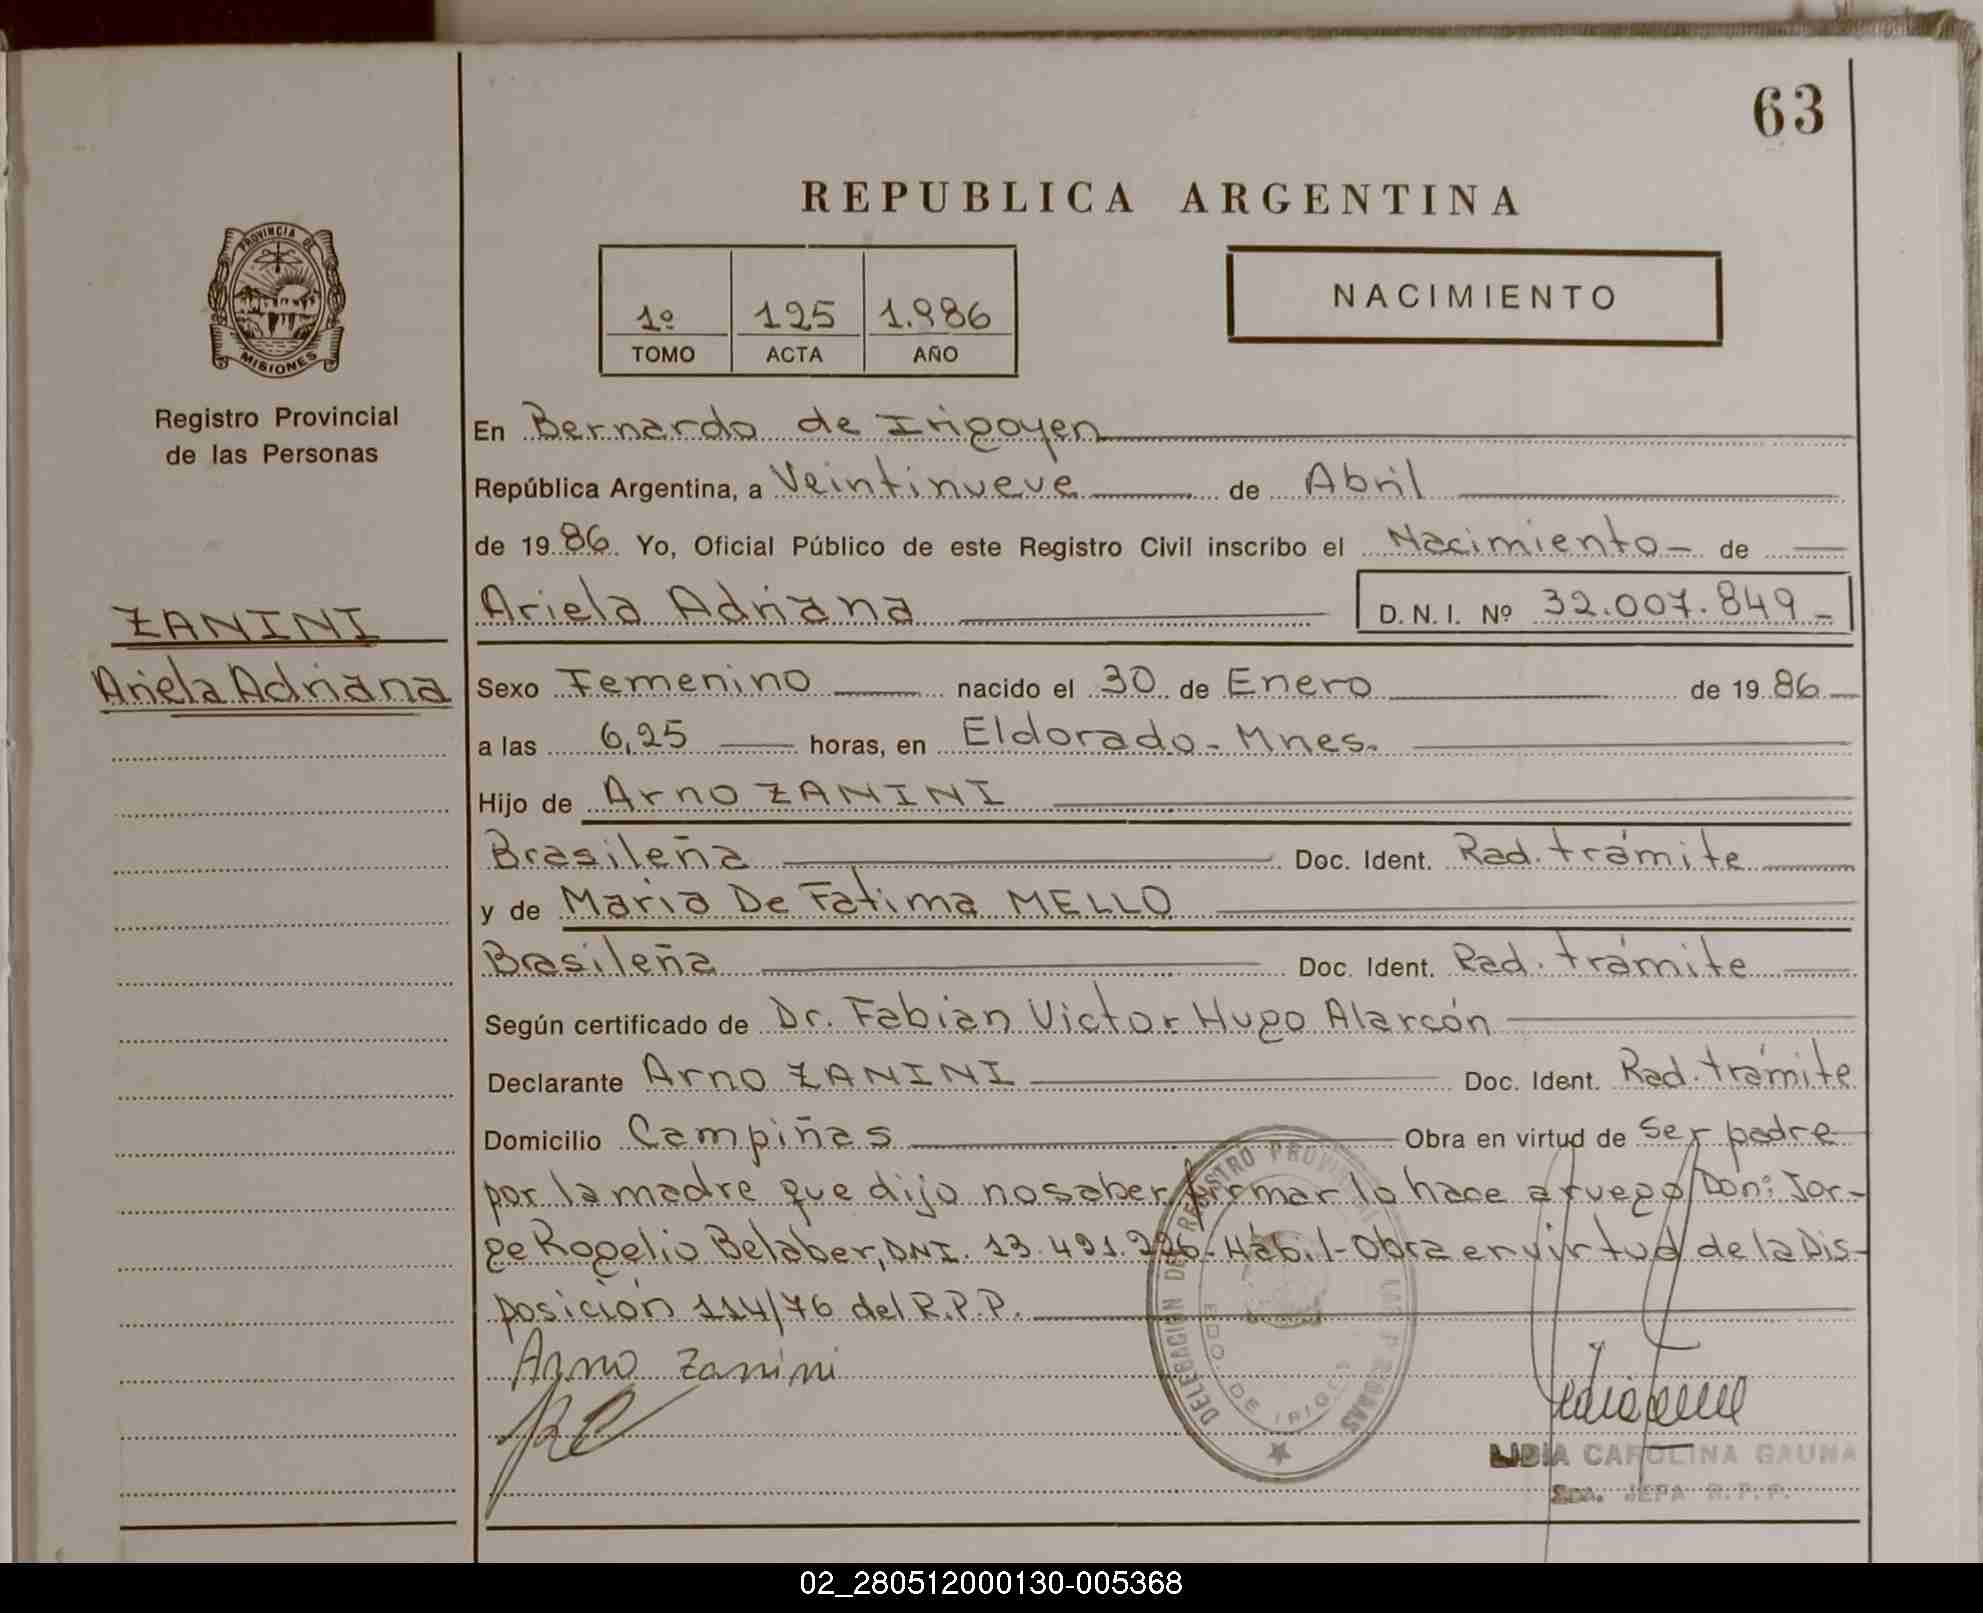 63
REPUBLICA ARGENTINA
PROVINCIA DE
MISIONES
Registro Provincial
de las Personas
1º 125 1.986
TOMO ACTA AÑO
NACIMIENTO
En Bernardo de Irigoyen
República Argentina, a Veintinueve de Abril
de 1986. Yo, Oficial Público de este Registro Civil inscribo el Nacimiento- de
ZANINI
Ariela Adriana
Ariela Adriana D. N. I. Nº 32.007.849.-
Sexo Femenino nacido el 30 de Enero de 1986
a las 6,25 horas, en Eldorado - Mnes.
Hijo de Arno ZANINI
Brasileña Doc. Ident. Rad. trámite
y de Maria De Fatima MELLO
Brasileña Doc. Ident. Rad. trámite
Según certificado de Dr. Fabian Victor Hugo Alarcón
Declarante Arno ZANINI Doc. Ident. Rad. trámite
Domicilio Campiñas Obra en virtud de Ser padre
por la madre que dijo no saber firmar lo hace a ruego Don: Jor-
ge Rogelio Belaber, DNI. 13.491.226- Hábil- Obra en virtud de la Dis-
posición 114/76 del R.P.P.
Arno Zanini
DELEGACION DEL REGISTRO PROVINCIAL DE LAS PERSONAS
BDO. DE IRIGOYEN
LIDIA CAROLINA GAUNA
JEFA R.P.P.
02_280512000130-005368